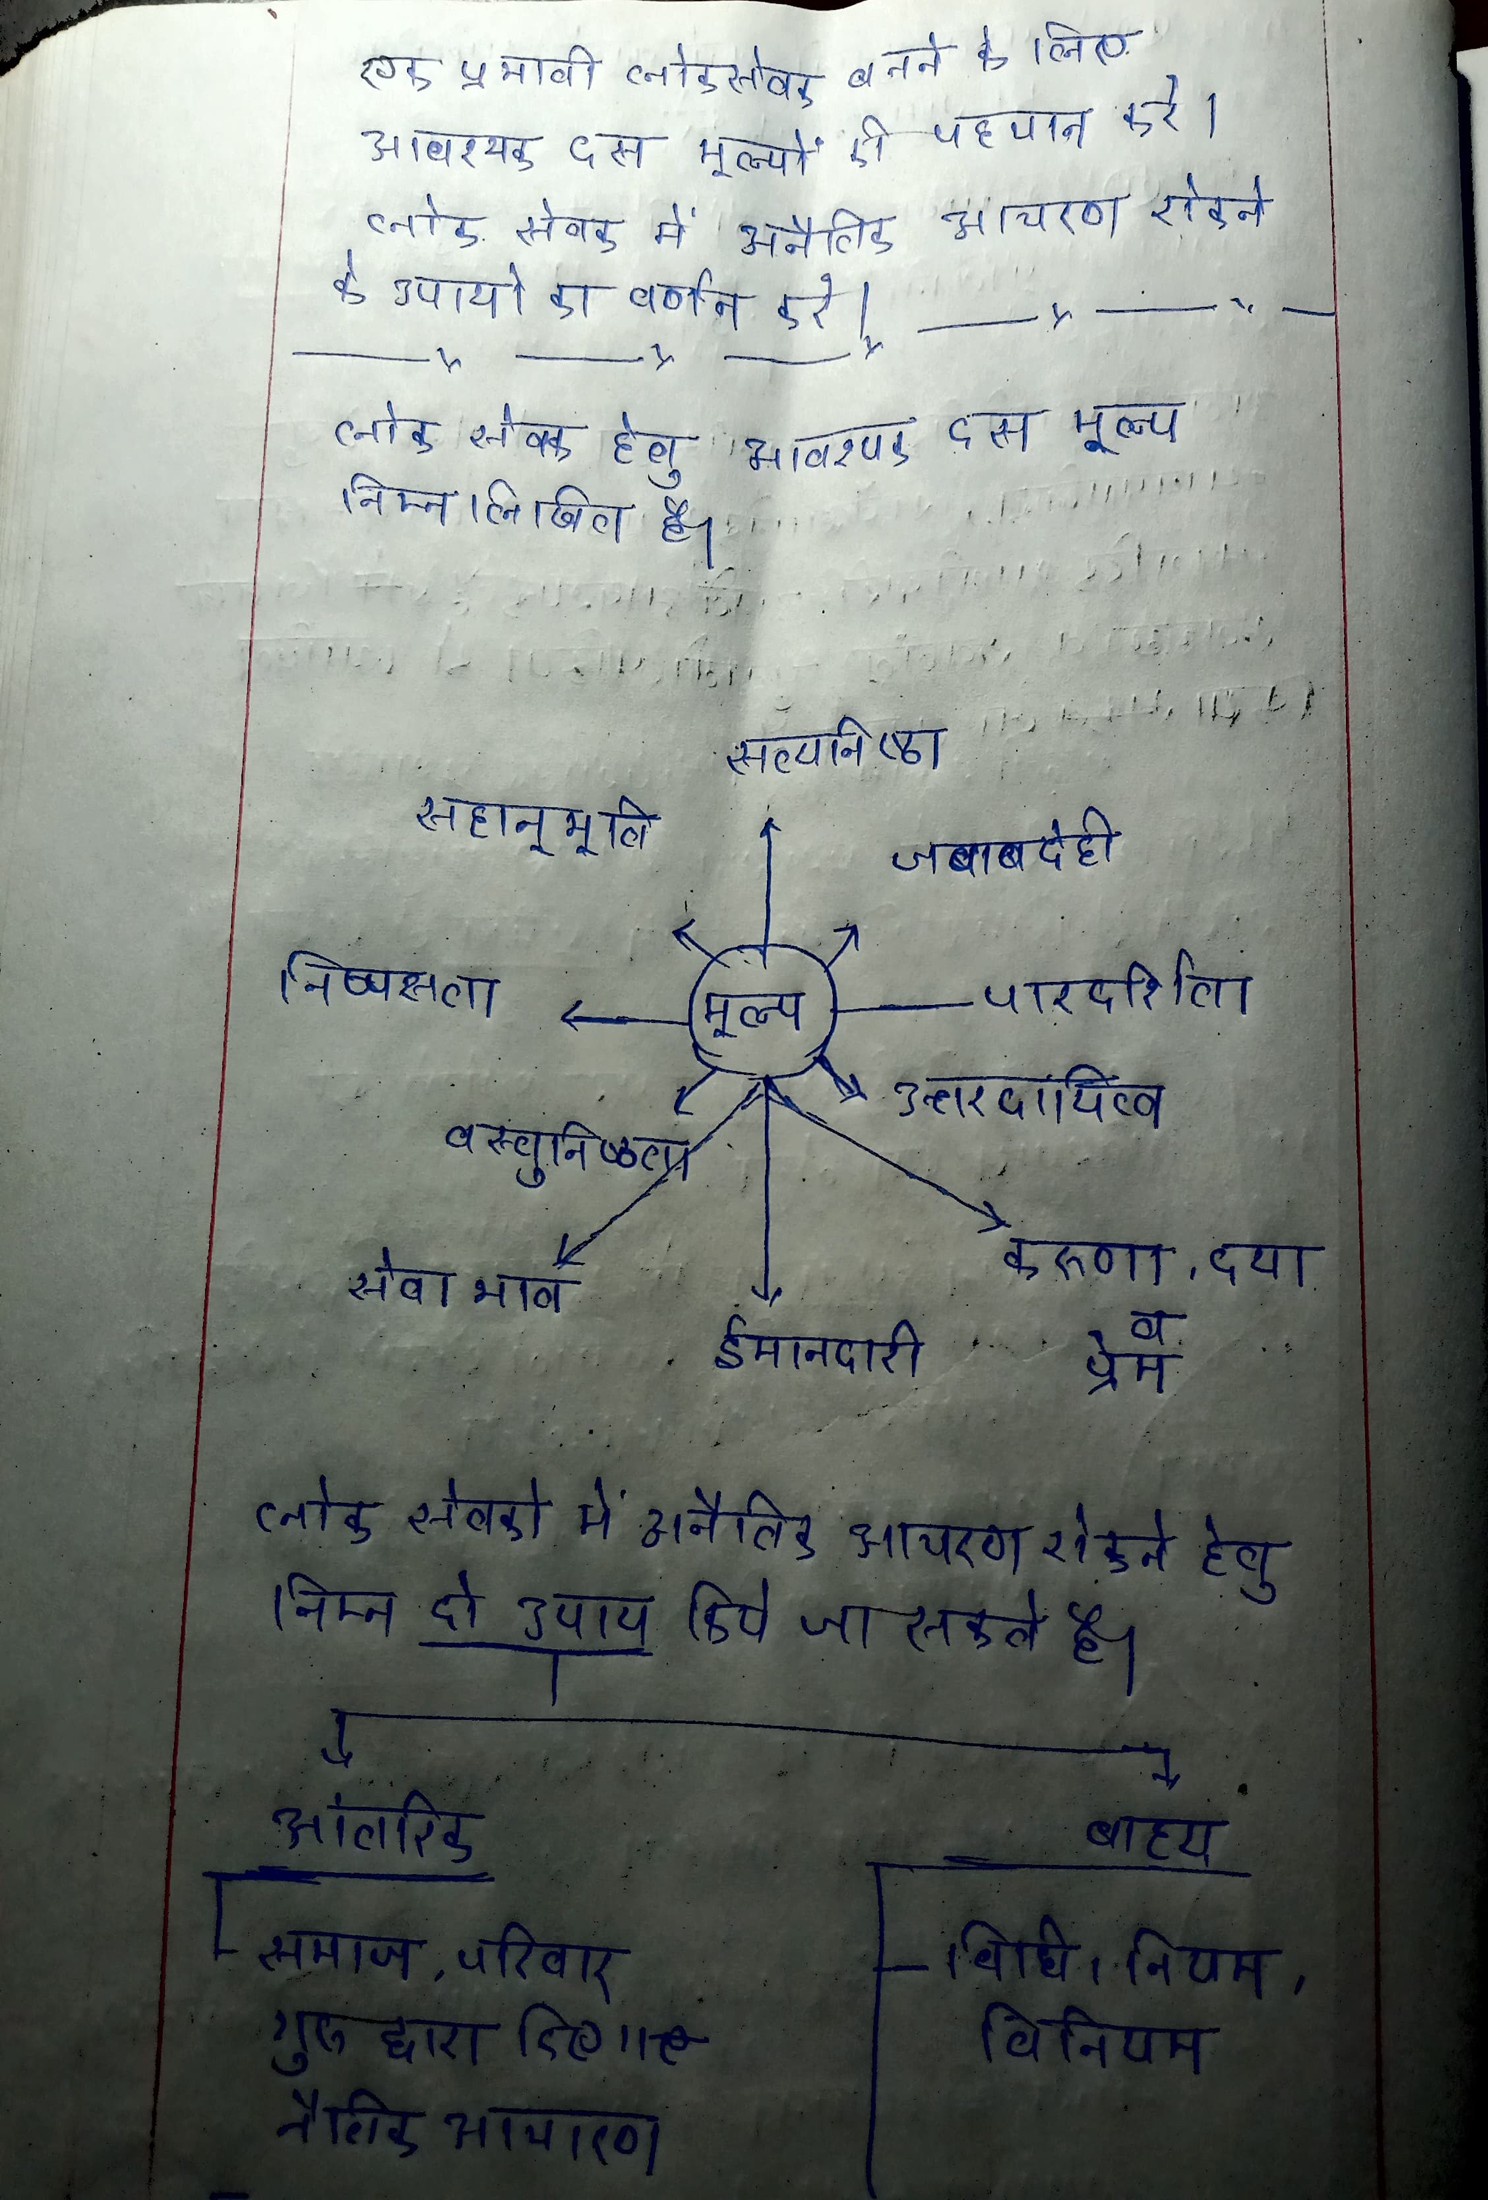 एक प्रभावी लोकसेवक बनने के लिए
आवश्यक दस मूल्यों की पहचान करे।
लोक सेवक में अनैतिक आचरण रोकने
के उपायो का वर्णन करे।
लोक सेवक हेतु आवश्यक दस मूल्य
निम्नलिखित है।
सत्यनिष्ठा
सहानूभूति
जबाबदेही
निष्पक्षता
मूल्य
पारदर्शिता
उत्तरदायित्व
वस्तुनिष्ठता
करूणा, दया
सेवा भाव
व
ईमानदारी
प्रेम
लोक सेवको में अनैतिक आचरण रोकने हेतु
निम्न दो उपाय किये जा सकते है।
आंतरिक
बाह्य
समाज, परिवार
विधि, नियम,
गुरू द्वारा
विनियम
नैतिक आचारण